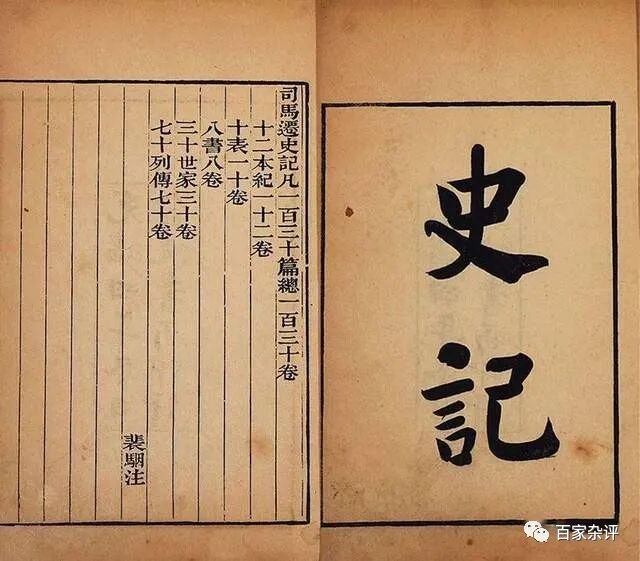 史記
司馬遷史記凡一百三十篇總一百三十卷
十二本紀一十二卷
十表一十卷
八書八卷
三十世家三十卷
七十列傳七十卷
裴駰注
百家杂评